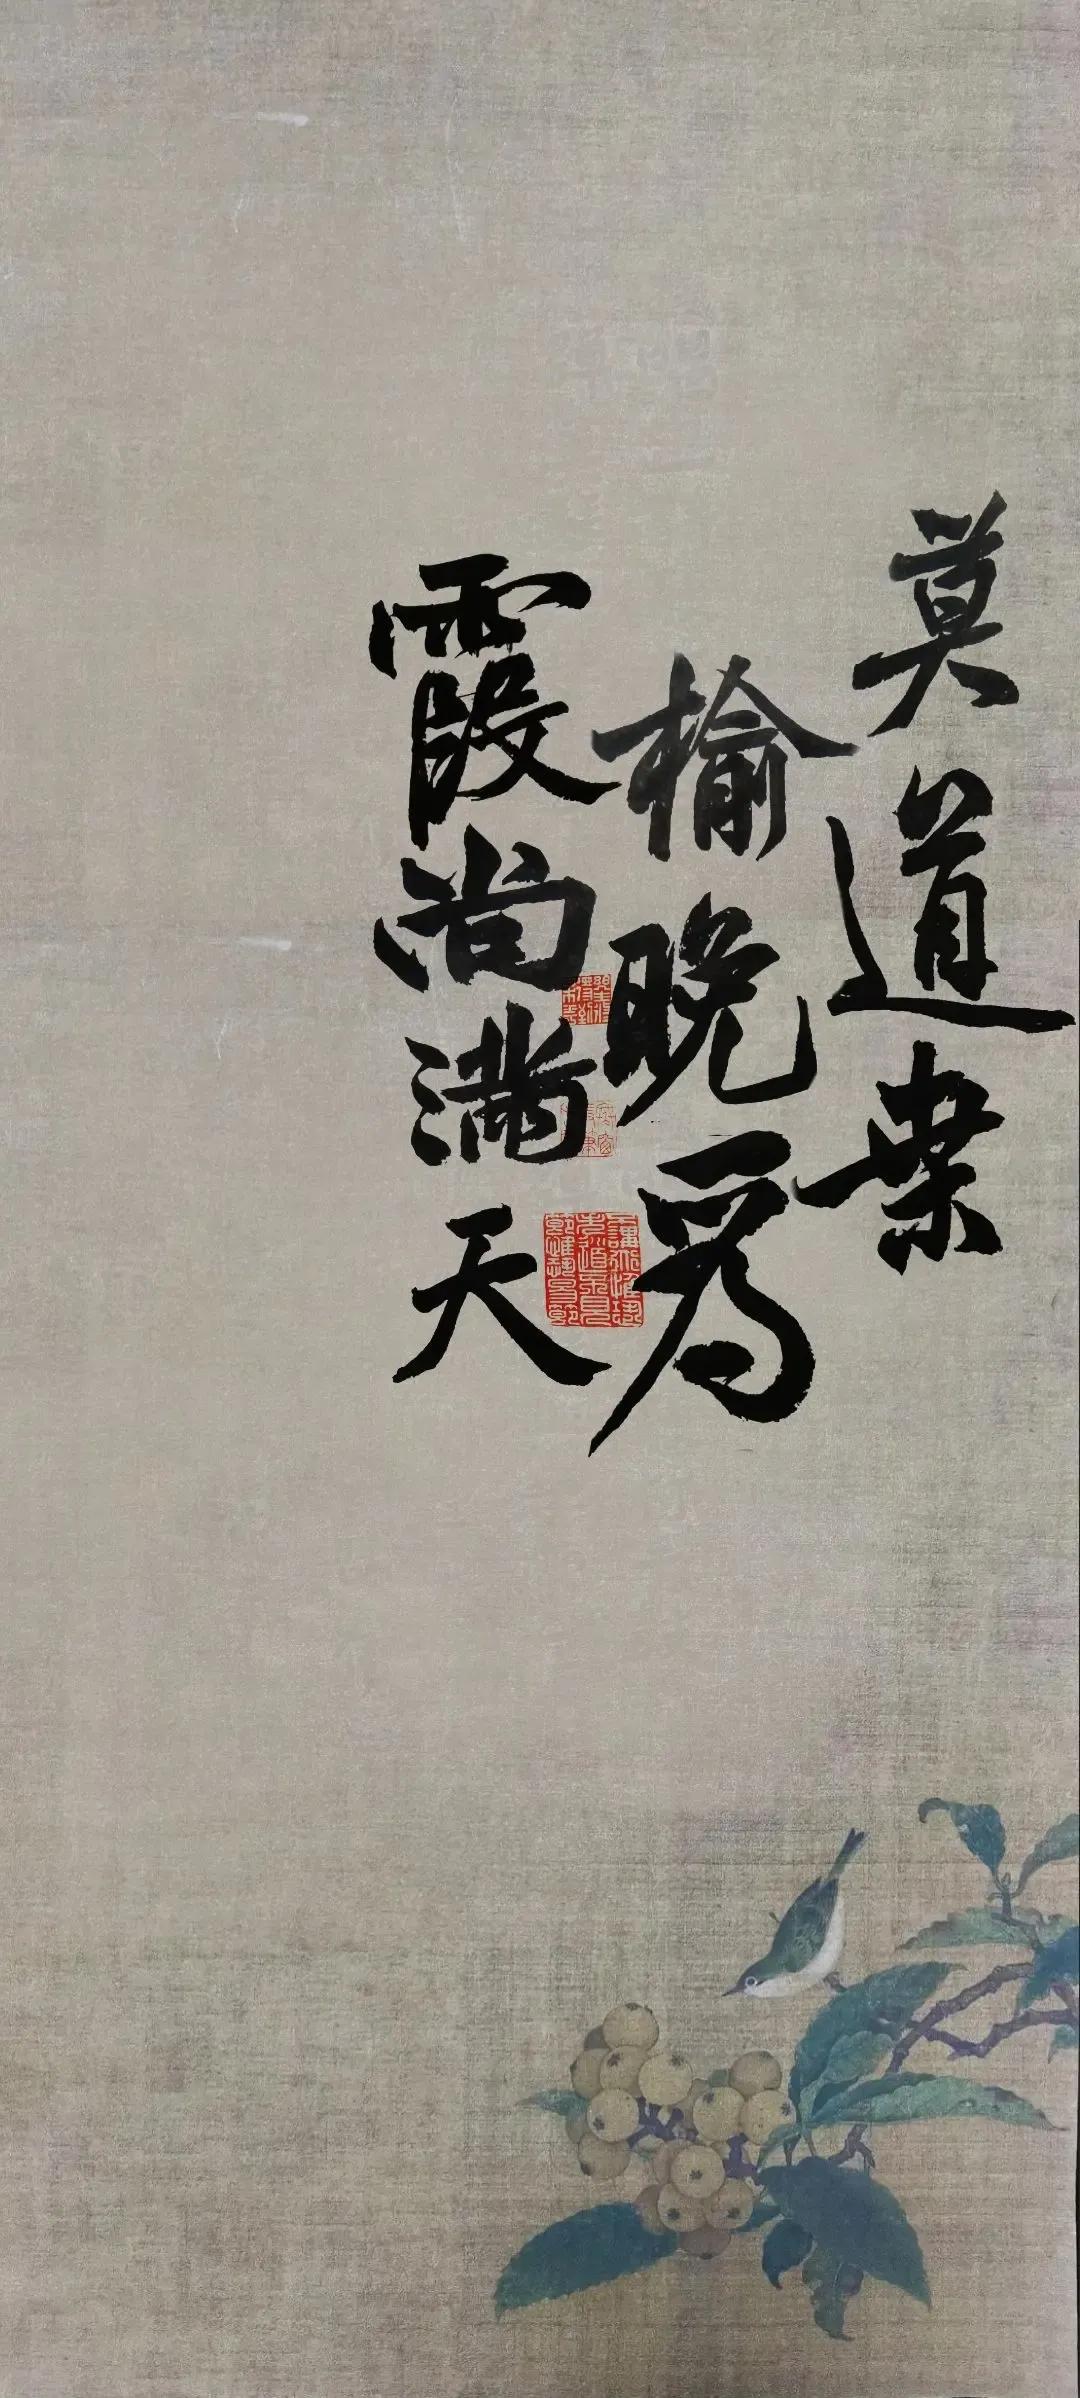 莫道桒
榆晚爲
霞尚满天